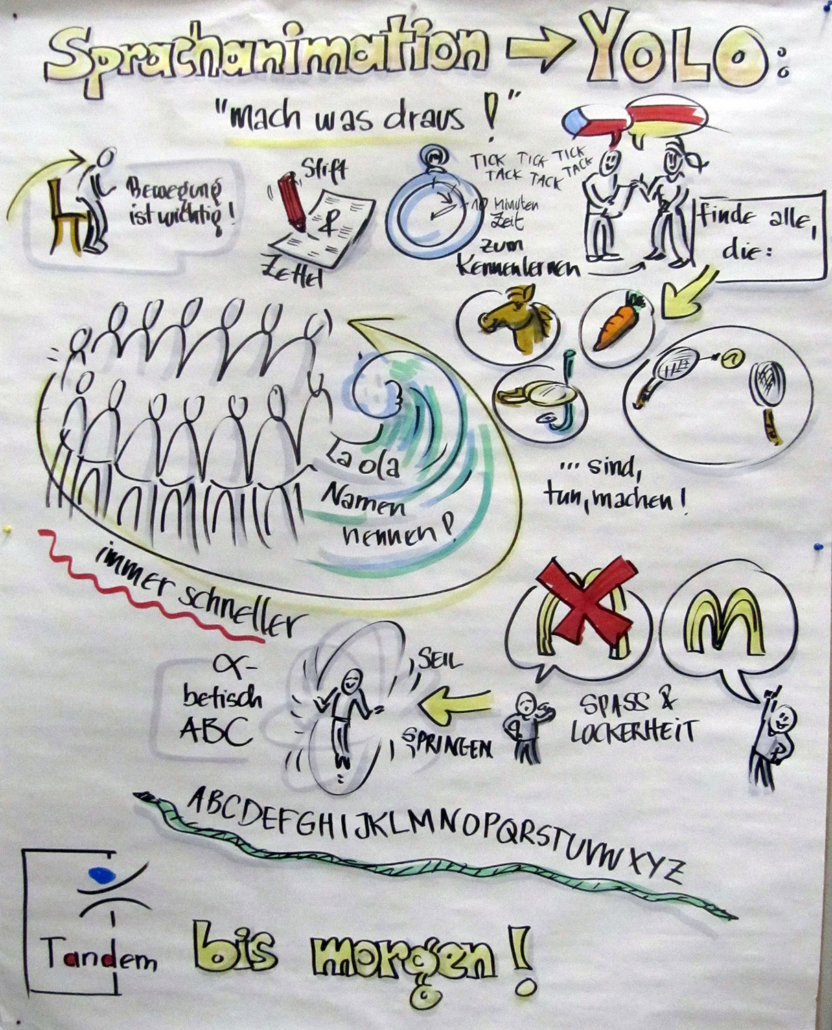 Sprachanimation → YOLO:
"mach was draus!"
Bewegung
ist wichtig!
Stift
&
Zettel
TICK TICK TICK
TACK TACK TACK
10 Minuten
Zeit
zum
Kennenlernen
finde alle,
die:
... sind,
tun, machen!
La ola
Namen
nennen!
immer schneller
M
M
SPASS &
LOCKERHEIT
SEIL
SPRINGEN
α-
betisch
ABC
ABCDEFGHIJKLMNOPQRSTUVWXYZ
Tandem
bis morgen!